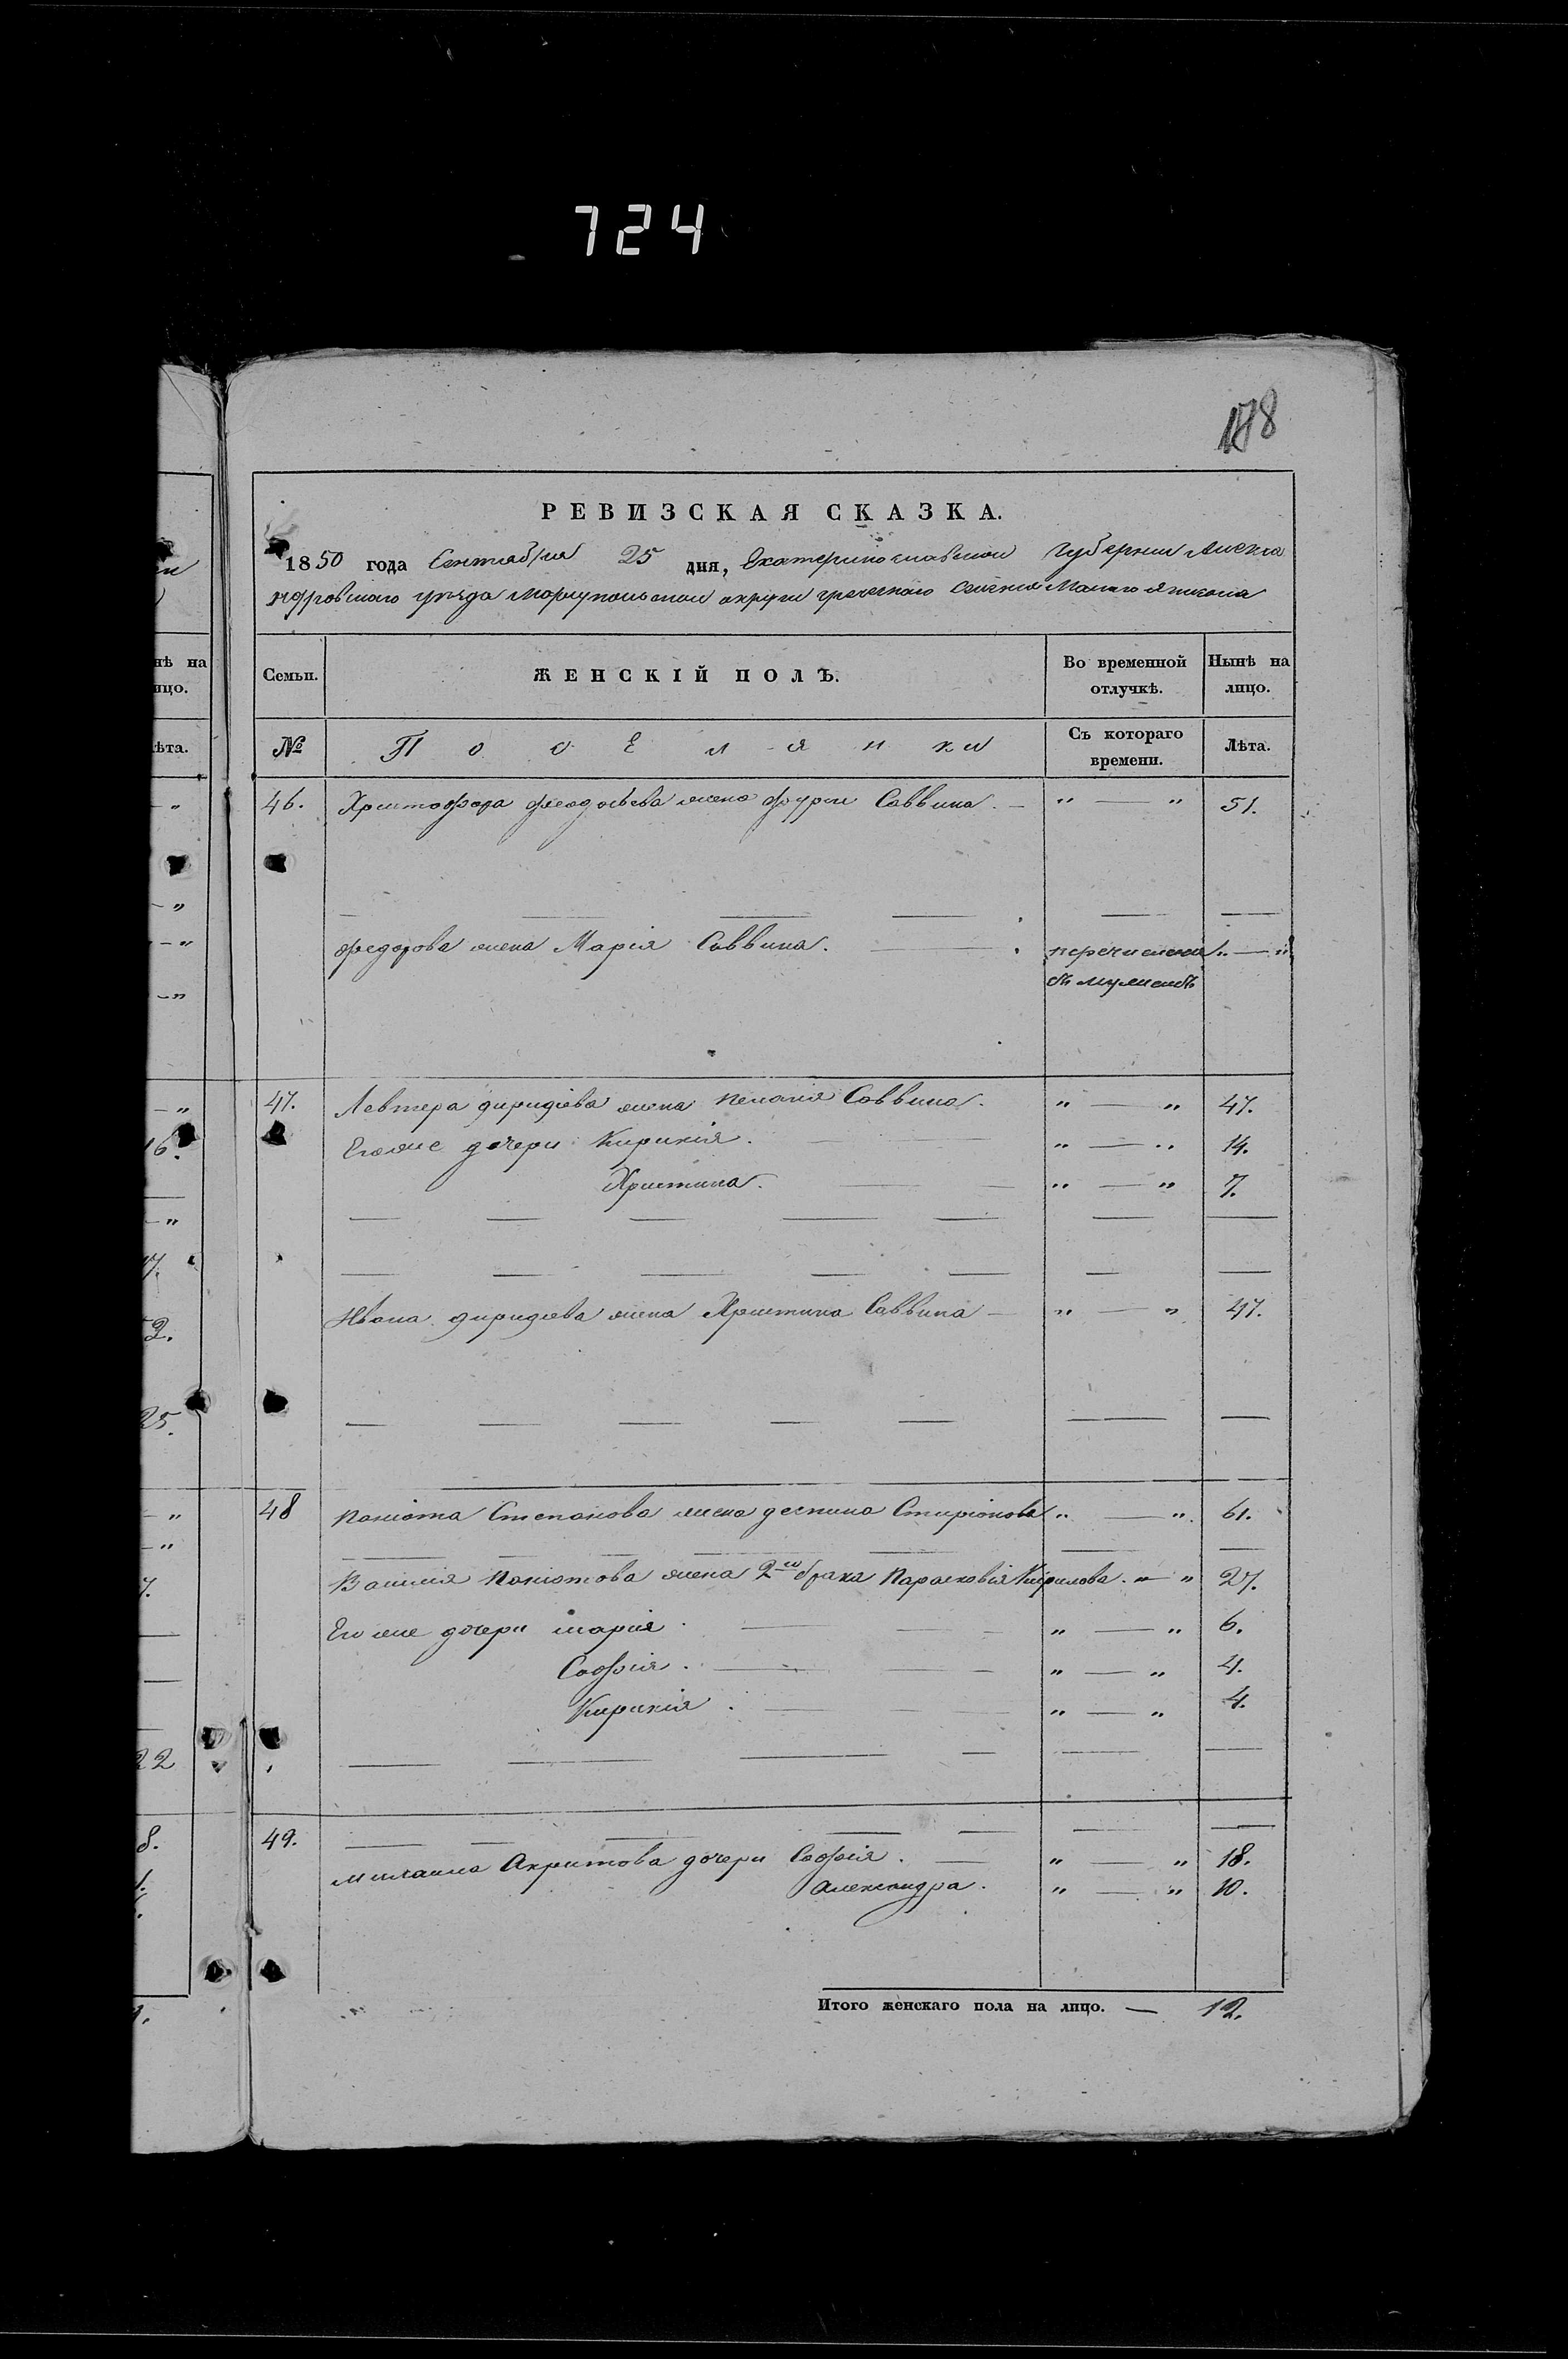 724
178
РЕВИЗСКАЯ СКАЗКА.
1850 года Сентября 25 дня, Екатеринославской Губернии Алекса
ндровскаго уѣзда Мариупольскаго округи греческаго Селения Малаго Янисоля
Семьи. ЖЕНСКІЙ ПОЛЪ. Во временной отлучкѣ. Нынѣ на лицо.
№ Поселянки Съ котораго времени. Лѣта.
46. Христофора Феодосьева жена Саввина. — " — " 51.
Федорова жена Марія Саввина. перечислена " — "
съ мужемъ
47. Левтера жена Пелагія Саввина. " — " 47.
Его же дочери Кирикія. " — " 14.
Христина. " — " 7.
Ивана жена Христина Саввина — " — " 47.
48 Панiота Степанова жена деспина " — " 61.
Василія Паніотова жена 2й брака Парасковія Кирилова. " — " 27.
Его же дочери марія. " — " 6.
Софія. " — " 4.
Кирикія. " — " 4.
49.
михаила Акритова дочери Софія. " — " 18.
Александра. " — " 10.
Итого женскаго пола на лицо. — 12.
нѣ на
ицо.
ѣта.